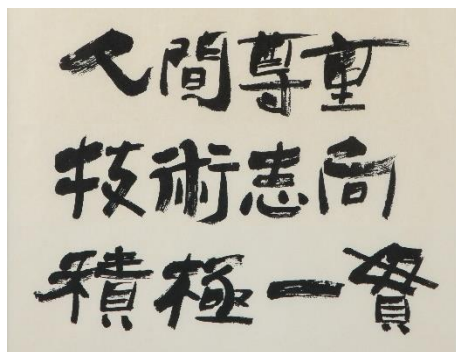 人間尊重
技術志向
積極一貫